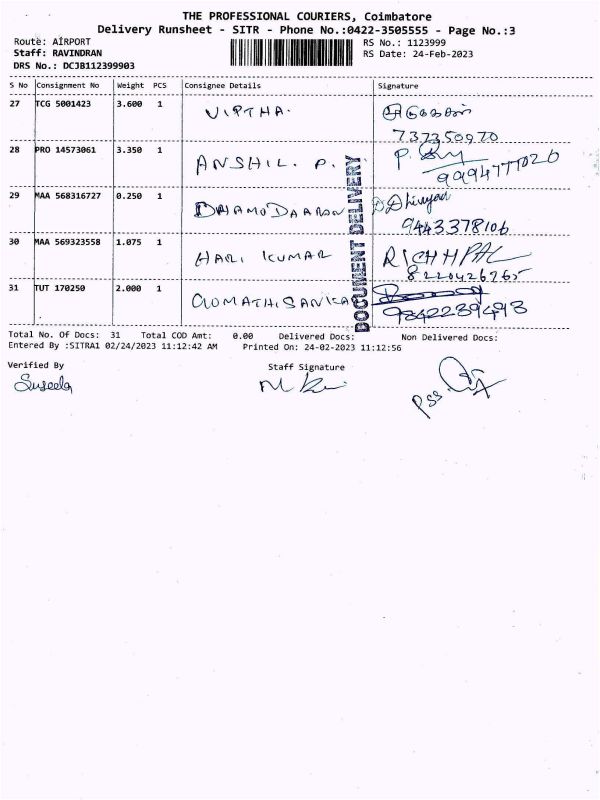 THE PROFESSIONAL COURIERS, Coimbatore
Delivery Runsheet - SITR - Phone No.:0422-3505555 - Page No.:3
Route: AIRPORT
RS No.: 1123999
Staff: RAVINDRAN
RS Date: 24-Feb-2023
DRS No.: DCJB112399903
S No Consignment No Weight PCS Consignee Details Signature
27 TCG 5001423 3.600 1 VIPTHA.
28 PRO 14573061 3.350 1 ANSHIL. P.
29 MAA 568316727 0.250 1 DHAMODARAN D Dhivyan
9443378106
30 MAA 569323558 1.075 1 HARI KUMAR RICHHPAL
8220426965
31 TUT 170250 2.000 1 GOMATHISANKA
DOCUMENT DELIVERY
Total No. Of Docs: 31 Total COD Amt: 0.00 Delivered Docs: Non Delivered Docs:
Entered By :SITRA1 02/24/2023 11:12:42 AM Printed On: 24-02-2023 11:12:56
Verified By Staff Signature
Suseela